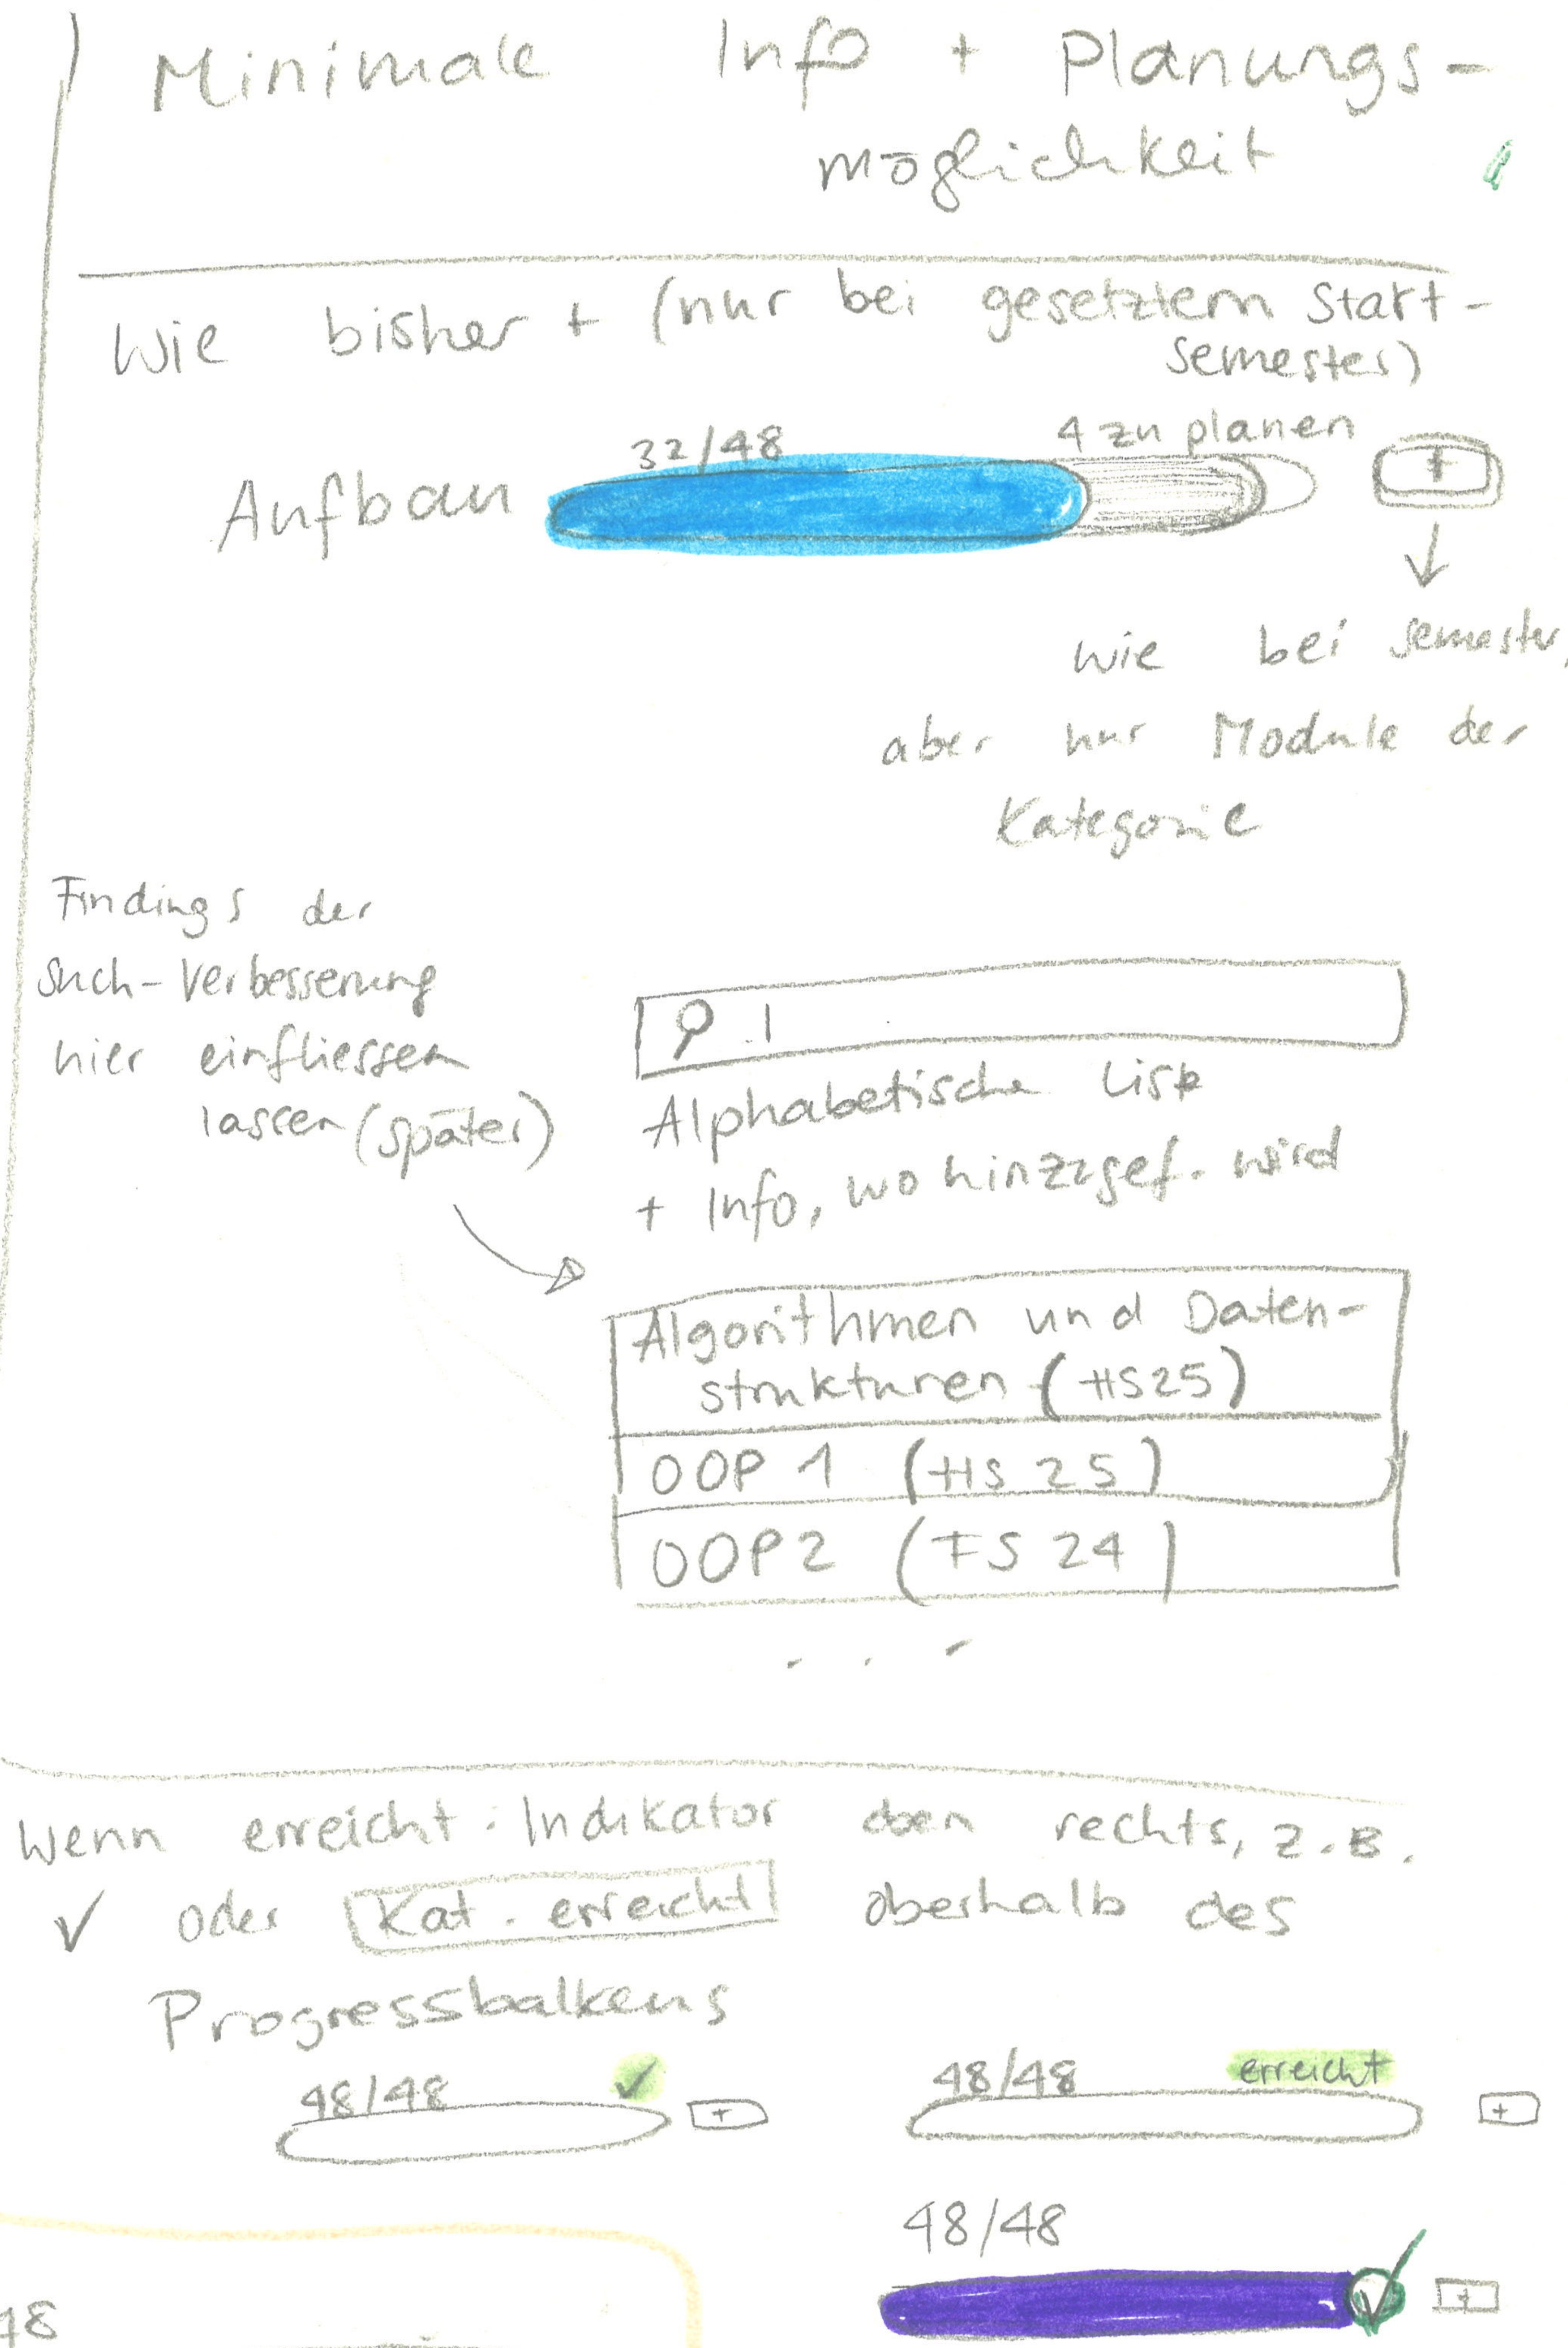 Minimale Info + Planungs-
möglichkeit
Wie bisher + (nur bei gesetztem Start-
semester)
32/48
4 zu planen
Aufbau
+
wie bei semester,
aber nur Module der
Kategorie
Findings der
Such-Verbesserung
hier einfliessen
lassen (später)
Alphabetische Liste
+ Info, wo hinzugef. wird
Algorithmen und Daten-
strukturen (HS25)
OOP 1 (HS 25)
OOP2 (FS 24)
...
Wenn erreicht: Indikator oben rechts, z.B.
✓ oder Kat. erreicht oberhalb des
Progressbalkens
48/48 ✓ +
48/48 erreicht +
48/48
✓ +
48